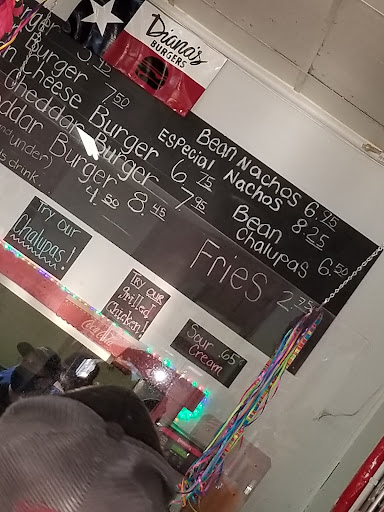 Diana's
BURGERS
Burger 7.50
Cheese Burger 6.75
Cheddar Burger 7.95
Burger 8.45
under)
drink. 4.50
Bean Nachos 6.45
Especial Nachos 8.25
Bean Chalupas 6.50
Fries 2.75
Try Our
Chalupas!
Try our
grilled
Chicken!
Sour .65¢
Cream
Coca-Cola